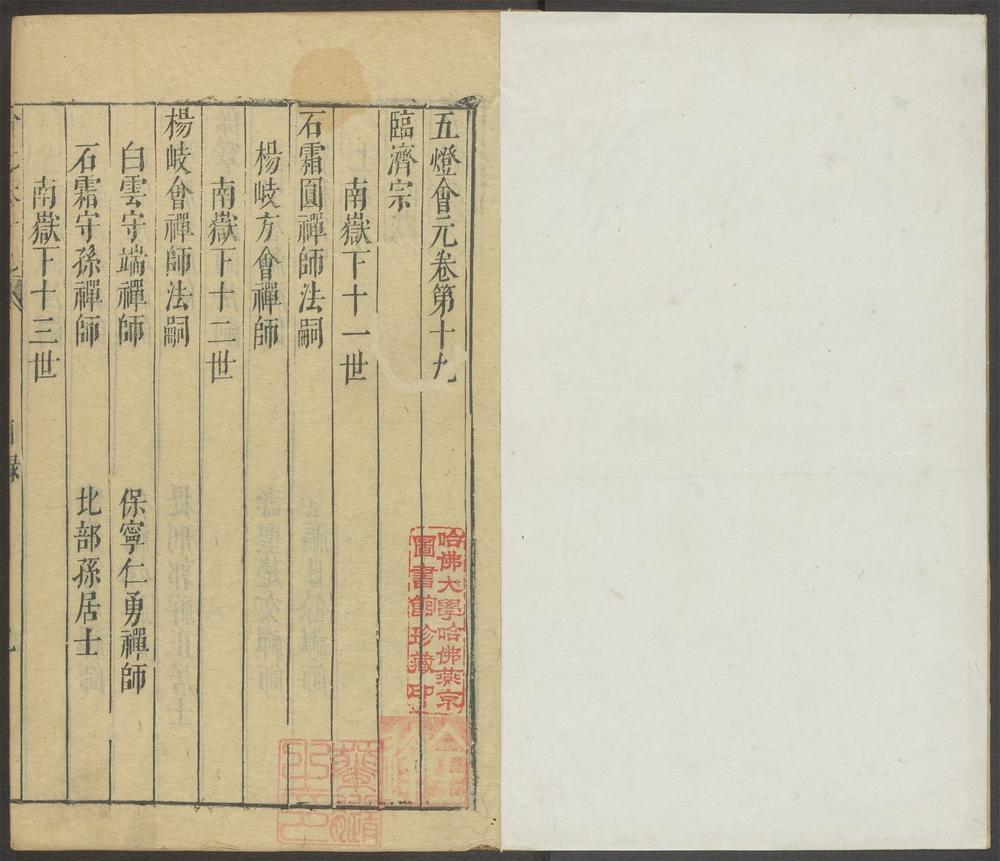 五燈會元卷第十九
臨濟宗
南嶽下十一世
石霜圓禪師法嗣
楊岐方會禪師
南嶽下十二世
楊岐會禪師法嗣
白雲守端禪師 保寧仁勇禪師
石霜守孫禪師 比部孫居士
南嶽下十三世
哈佛大學哈佛燕京
圖書館珍藏印